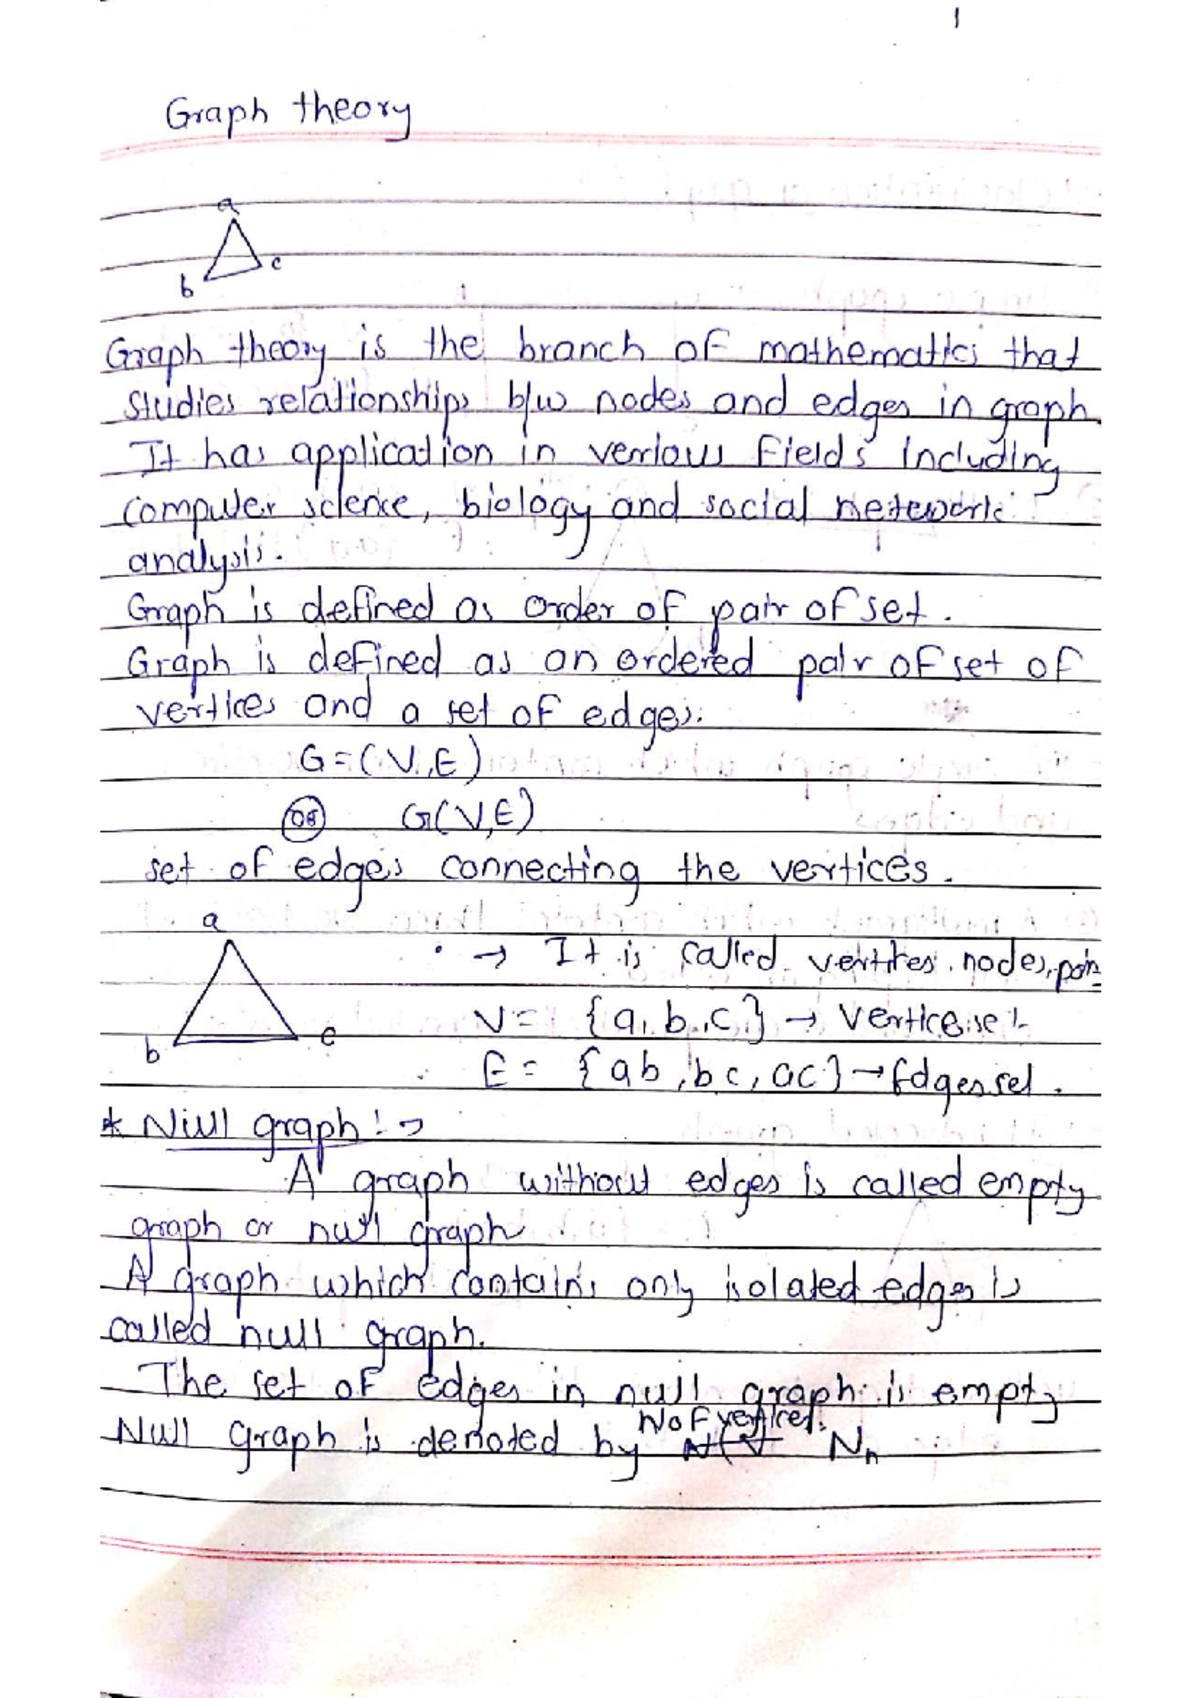 1
Graph theory
a
b c
Graph theory is the branch of mathematics that
studies relationships b/w nodes and edges in graph.
It has application in verious fields including
computer science, biology and social network
analysis.
Graph is defined as order of pair of set.
Graph is defined as an ordered pair of set of
vertices and a set of edges.
G = (V, E)
OR G(V,E)
set of edges connecting the vertices.
a
b c
→ It is called vertites, nodes, poin
V = {a, b, c} → Vertice set
E = {ab, bc, ac} → Edges set.
* Niull graph :→
A graph without edges is called empty
graph or null graph
A graph which contains only isolated edges is
called null graph.
The set of edges in null graph is empty
No of vertices.
Null graph is denoted by N(V Nn